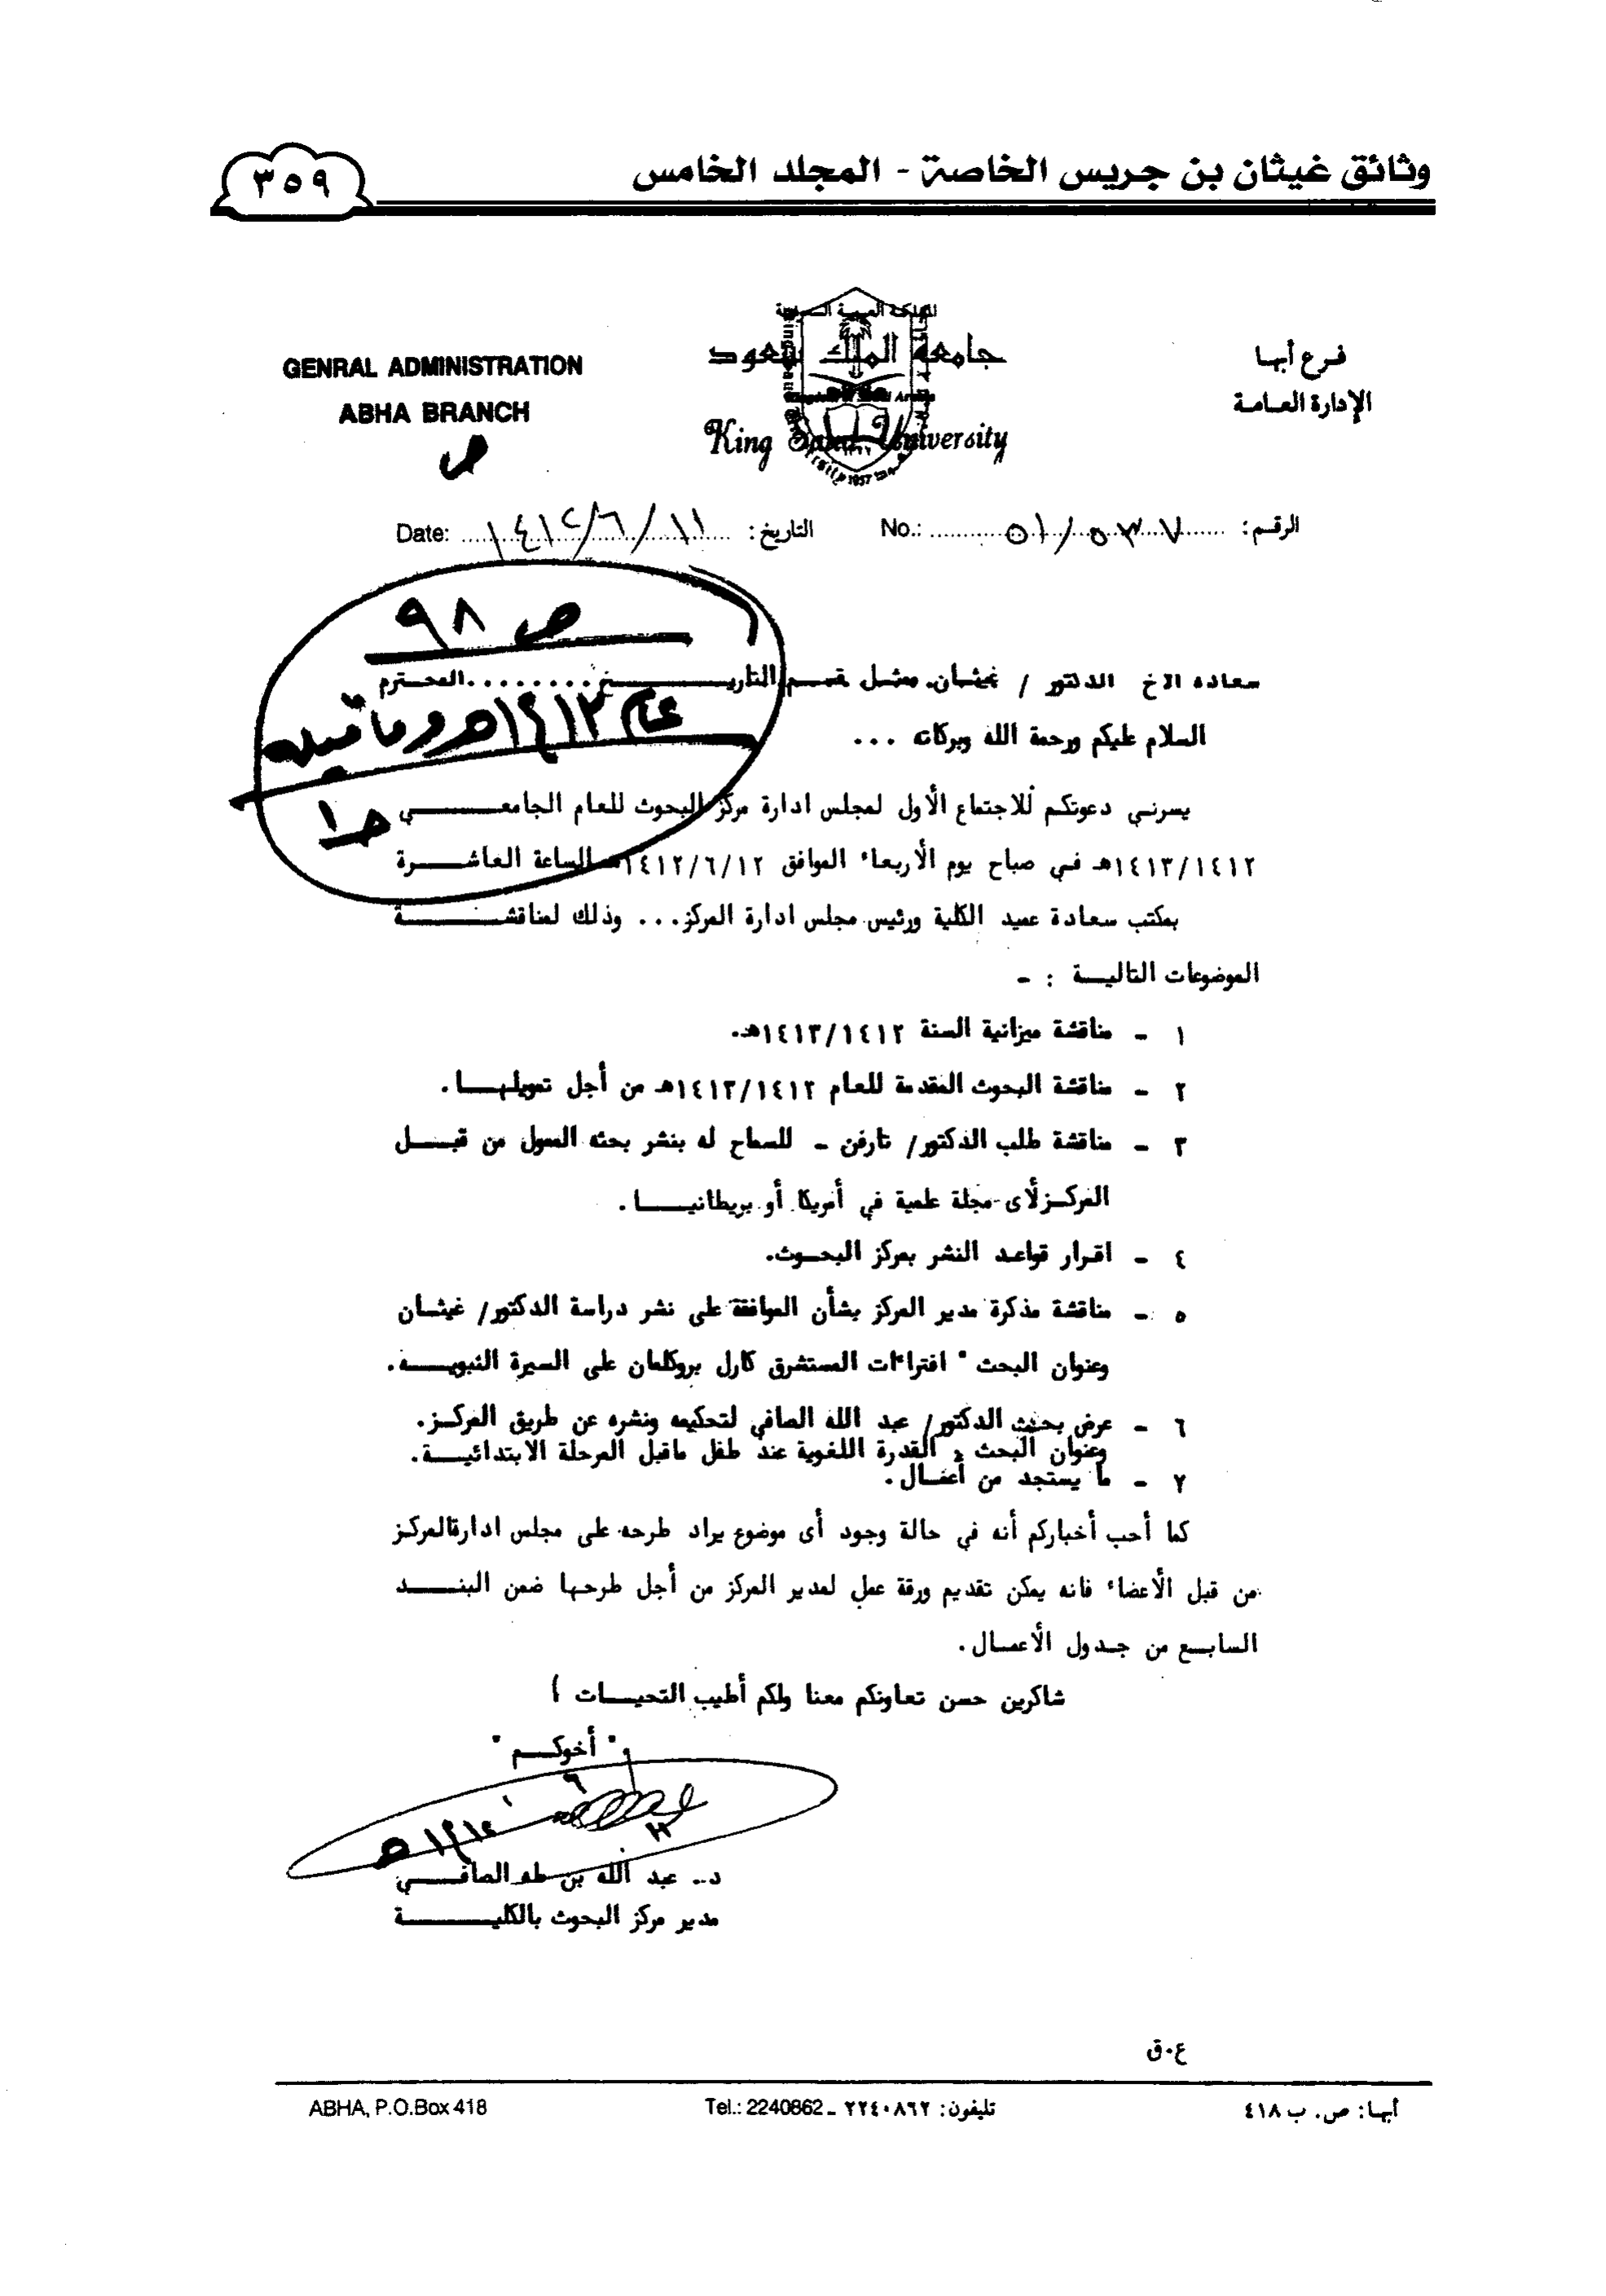 وثائق غيثان بن جريس الخاصة - المجلد الخامس
٣٥٩
المملكة العربية السعودية
فرع أبها
الإدارة العامة
جامعة الملك سعود
King Saud University
GENRAL ADMINISTRATION
ABHA BRANCH
ص
الرقم: ٥١/٥٣٧ No.:
التاريخ: ١٤١٢/٦/١١ Date:
ص ٩٨
عام ١٤١٢هـ وما قبله
سعادة الاخ الدكتور / غيثان. ممثل قسم التاريـــخ ........المحترم
السلام عليكم ورحمة الله وبركاته ...
يسرني دعوتكم للاجتماع الأول لمجلس ادارة مركز البحوث للعام الجامعـــي
١٤١٣/١٤١٢هـ في صباح يوم الأربعاء الموافق ١٤١٢/٦/١٢هـ الساعة العاشـــرة
بمكتب سعادة عميد الكلية ورئيس مجلس ادارة المركز... وذلك لمناقشـــة
الموضوعات التاليـة : -
١ - مناقشة ميزانية السنة ١٤١٣/١٤١٢هـ.
٢ - مناقشة البحوث المقدمة للعام ١٤١٣/١٤١٢هـ من أجل تمويلهـــا.
٣ - مناقشة طلب الدكتور/ تارفن - للسماح له بنشر بحثه الممول من قبـــل
المركـز لأى مجلة علمية في أمريكا أو بريطانيـــا.
٤ - اقرار قواعد النشر بمركز البحــوث.
٥ - مناقشة مذكرة مدير المركز بشأن الموافقة على نشر دراسة الدكتور/ غيثـان
وعنوان البحث " افتراءات المستشرق كارل بروكلمان على السيرة النبويـــه.
٦ - عرض بحث الدكتور/ عبد الله الصافي لتحكيمه ونشره عن طريق المركـز.
وعنوان البحث القدرة اللغوية عند طفل ماقبل المرحلة الابتدائيــة.
٧ - ما يستجد من أعمــال.
كما أحب أخباركم أنه في حالة وجود أى موضوع يراد طرحه على مجلس ادارةالمركـز
من قبل الأعضاء فانه يمكن تقديم ورقة عمل لمدير المركز من أجل طرحها ضمن البنـــد
السابـع من جـدول الأعمـال.
شاكرين حسن تعاونكم معنا ولكم أطيب التحيـــات
" أخوكـــم "
د. عبد الله بن طه الصافـــي
مدير مركز البحوث بالكليـــة
ع.ق
أبها: ص. ب ٤١٨
تليفون: ٢٢٤٠٨٦٢ - Tel.: 2240862
ABHA, P.O.Box 418